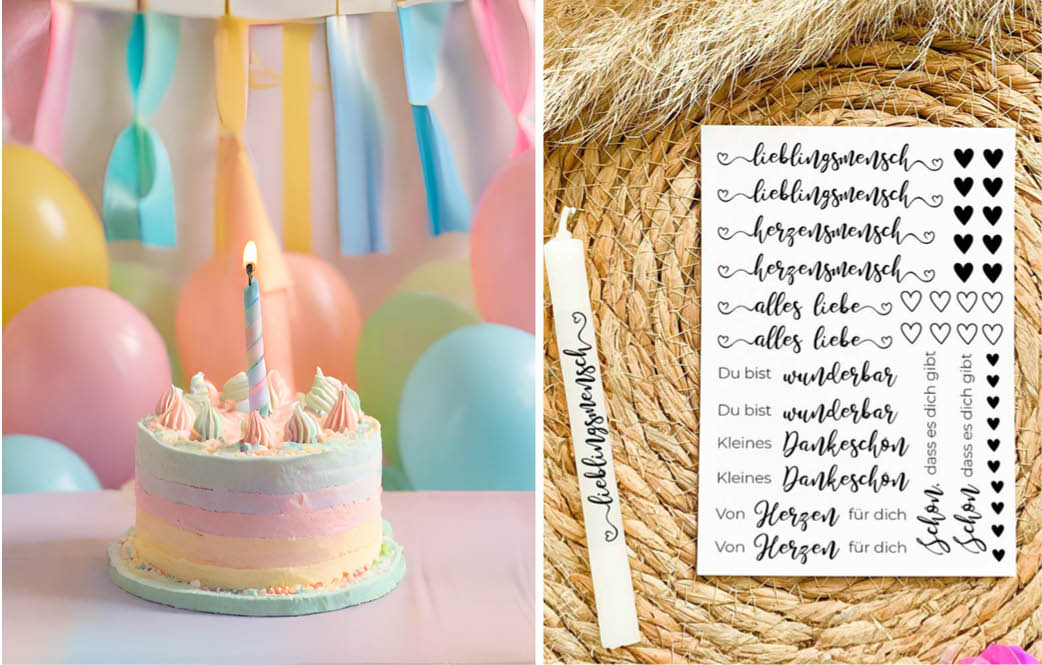 lieblingsmensch
lieblingsmensch
lieblingsmensch
herzensmensch
herzensmensch
alles liebe
alles liebe
Du bist wunderbar
Du bist wunderbar
Kleines Dankeschön
Kleines Dankeschön
Von Herzen für dich
Von Herzen für dich
Schön, dass es dich gibt
Schön dass es dich gibt